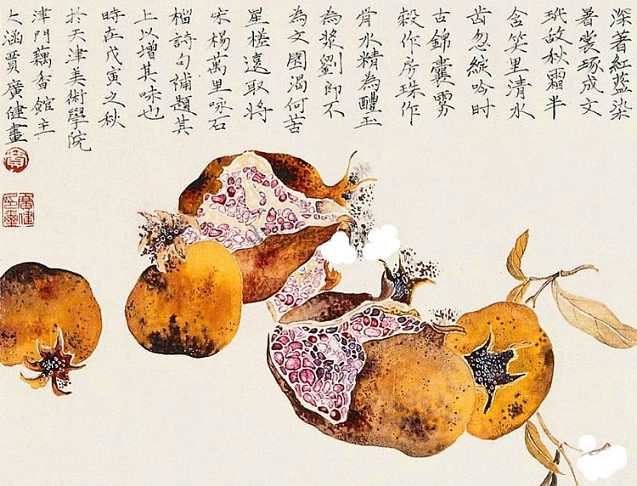 深著紅藍染
暑裳琢成文
玳故秋霜半
含笑里清水
齿忽綻吟时
古錦囊雾
縠作房珠作
骨水精為醴玉
為漿劉郎不
為文園渴何苦
星槎遠取將
宋楊萬里咏石
榴詩句補題其
上以增其味也
時在戊寅之秋
於天津美術學院
津門藕香館主
之涵賈廣健畫
賈